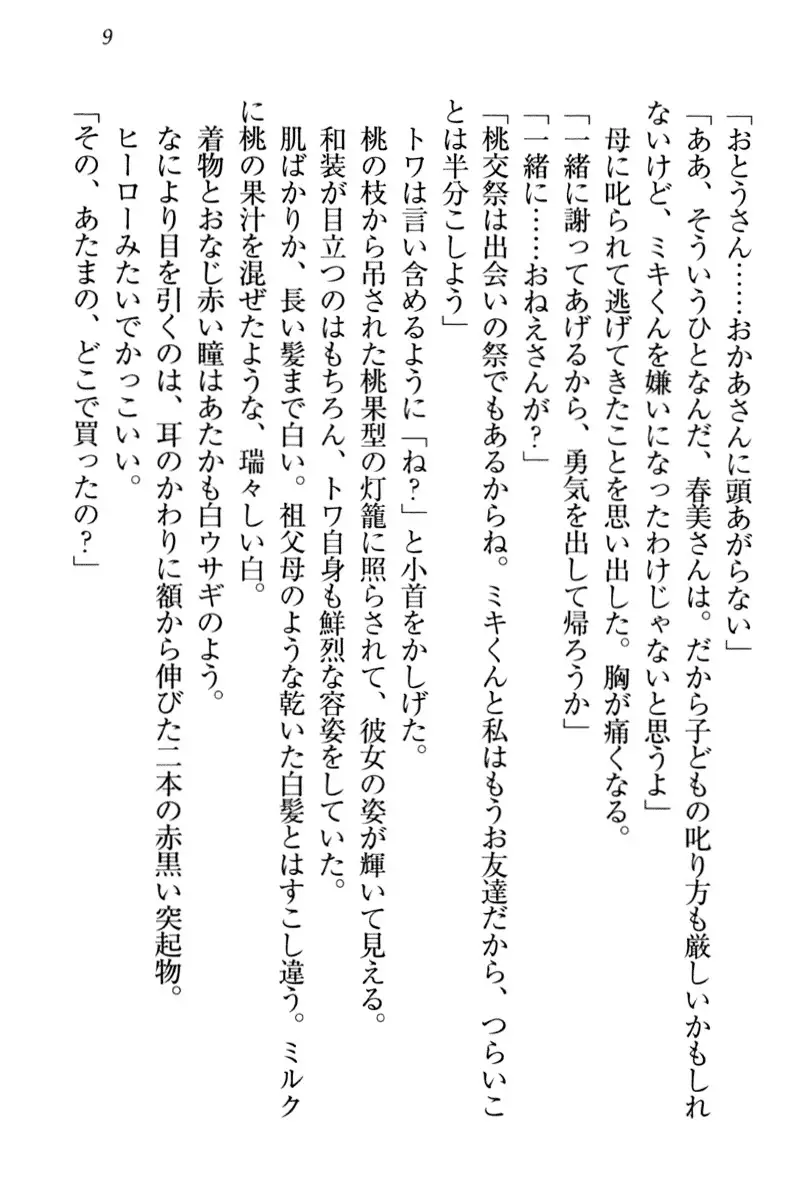 9
「おとうさん……おかあさんに頭あがらない」
「ああ、そういうひとなんだ、春美さんは。だから子どもの叱り方も厳しいかもしれ
ないけど、ミキくんを嫌いになったわけじゃないと思うよ」
母に叱られて逃げてきたことを思い出した。胸が痛くなる。
「一緒に謝ってあげるから、勇気を出して帰ろうか」
「一緒に……おねえさんが？」
「桃交祭は出会いの祭でもあるからね。ミキくんと私はもうお友達だから、つらいこ
とは半分こしよう」
トワは言い含めるように「ね？」と小首をかしげた。
桃の枝から吊された桃果型の灯籠に照らされて、彼女の姿が輝いて見える。
和装が目立つのはもちろん、トワ自身も鮮烈な容姿をしていた。
肌ばかりか、長い髪まで白い。祖父母のような乾いた白髪とはすこし違う。ミルク
に桃の果汁を混ぜたような、瑞々しい白。
着物とおなじ赤い瞳はあたかも白ウサギのよう。
なにより目を引くのは、耳のかわりに額から伸びた二本の赤黒い突起物。
ヒーローみたいでかっこいい。
「その、あたまの、どこで買ったの？」